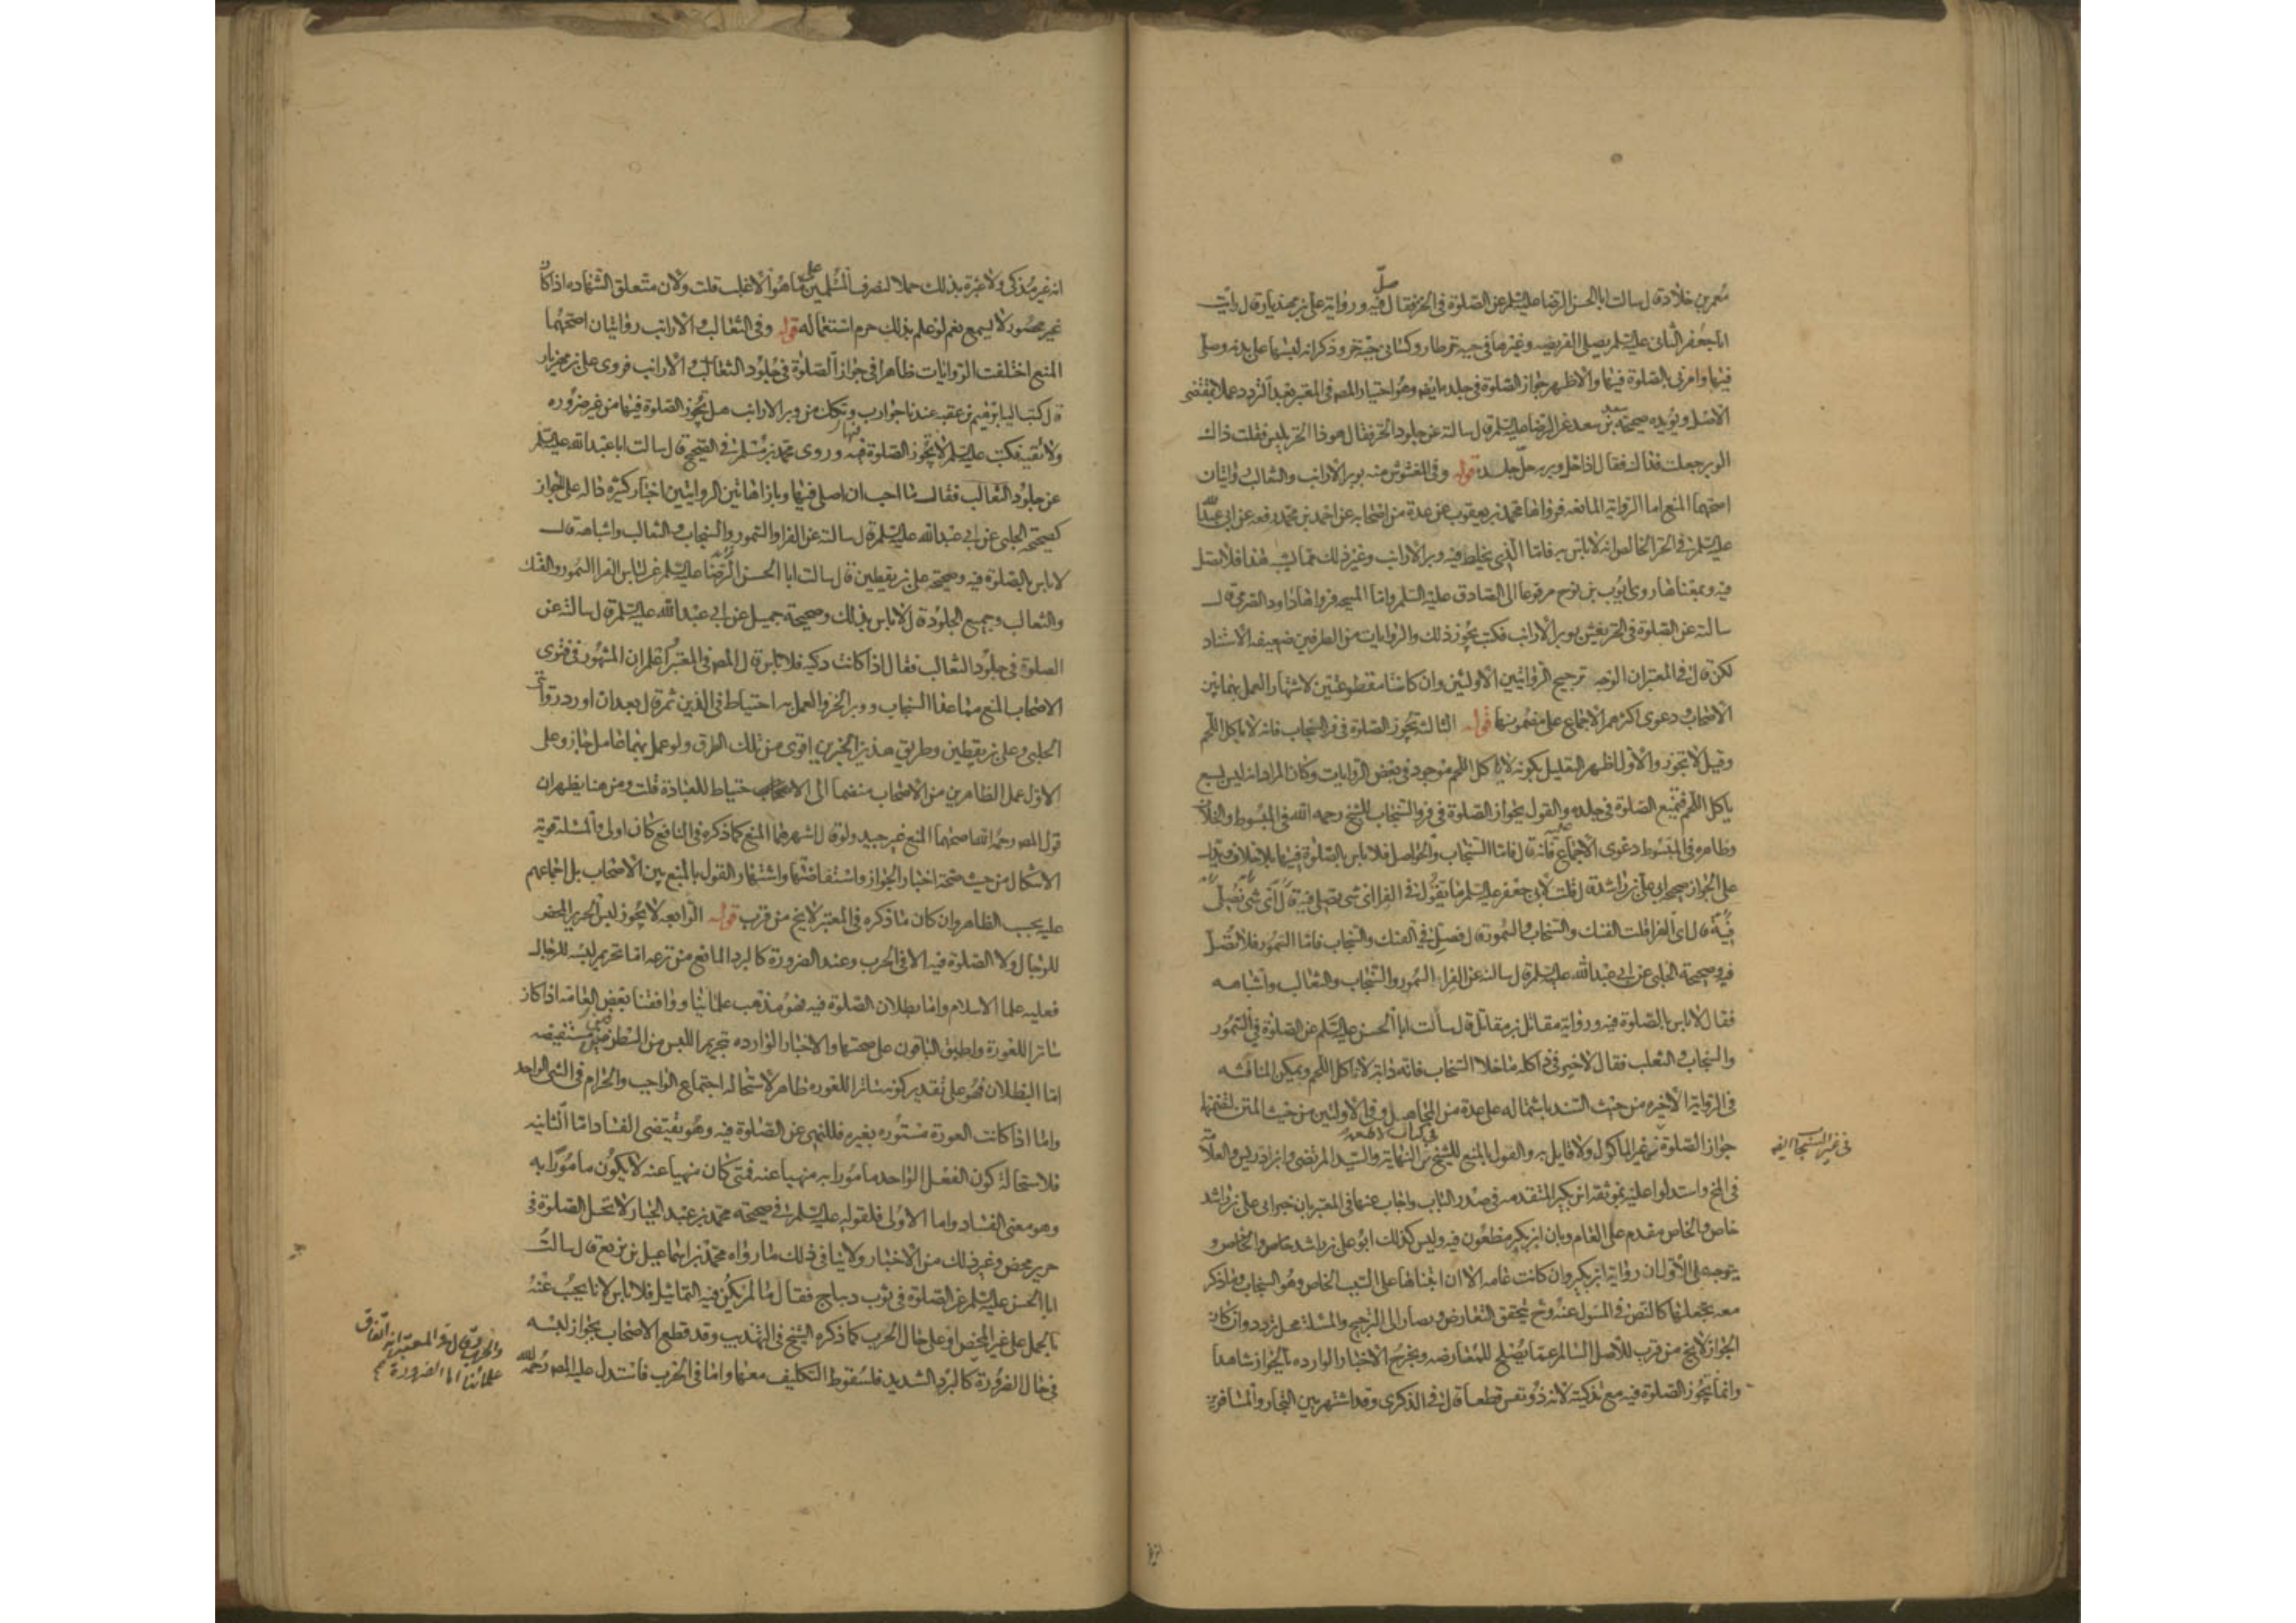 معمر بن خلاد قال سالت ابا الحسن الرضا عليه السلم عن الصلوة في الخز فقال صلّ فيه ورواية علي بن مهزيار قال رايت
ابا جعفر الثاني عليه السلم يصلي الفريضه وغيرها في جبه خز طاروى وكساني جبة خز وذكر انه لبسها على بدنه وصلى
فيها وامرني بالصلوة فيها والاظهر جواز الصلوة في جلده ايضا وهو اختيار المص في المعتبر بعد التردد عملا بمقتضى
الاصل ويؤيده صحيحة سعد بن سعد عن الرضا عليه السلم قال سالته عن جلود الخز فقال هو ذا الخز يلبس فقلت ذاك
الوبر جعلت فداك فقال اذا حل وبره حلّ جلده قوله وفي المغشوش منه بوبر الارانب والثعالب روايتان
اصحهما المنع اما الرواية المانعه فرواها محمد بن يعقوب عن عدة من اصحابه عن احمد بن محمد رفعه عن ابي عبد الله
عليه السلم في الخز الخالص انه لا باس به فاما الذي يخلط فيه وبر الارانب وغير ذلك مما يشبه هذا فلا تصل
فيه وبمعناها روى ايوب بن نوح مرفوعا الى الصادق عليه السلم واما المبيحه فرواها داود الصرمي قال
سالته عن الصلوة في الخز يغش بوبر الارانب فكتب يجوز ذلك والروايات من الطرفين ضعيفه الاسناد
لكن قال في المعتبر ان الوجه ترجيح الروايتين الاولتين وان كانتا مقطوعتين لاشتهار العمل بهما بين
الاصحاب ودعوى اكثرهم الاجماع على مضمونها قوله الثالث تجوز الصلوة في فرو السنجاب فانه لا ياكل اللحم
وقيل لا تجوز والاول اظهر التعليل بكونه لا ياكل اللحم موجود في بعض الروايات وكان المراد انه ليس بسبع
ياكل اللحم فتمنع الصلوة في جلده والقول بجواز الصلوة في فرو السنجاب للشيخ رحمه الله في المبسوط والخلاف
وظاهره في المبسوط دعوى الاجماع عليه فانه قال فاما السنجاب والحواصل فلا باس بالصلوة فيهما بلا خلاف ويدل
على الجواز صحيحة ابي علي بن راشد قال قلت لابي جعفر عليه السلم ما تقول في الفرا اي شي يصلى فيه قال اي شي تصلى
فيه قال اي الفرا قلت الفنك والسنجاب والسمور قال فصل في الفنك والسنجاب فاما السمور فلا تصل
فيه وصحيحة الحلبي عن ابي عبد الله عليه السلم قال سالته عن الفراء السمور والسنجاب والثعالب واشباهه
فقال لا باس بالصلوة فيه ورواية مقاتل بن مقاتل قال سالت ابا الحسن عليه السلم عن الصلوة في السمور
والسنجاب والثعلب فقال لا خير في ذا كله ما خلا السنجاب فانه دابة لا تاكل اللحم ويمكن المناقشه
في الرواية الاخيره من حيث السند باشتماله على عدة من المجاهيل وفي الاولتين من حيث المتن لتضمنها
جواز الصلوة في غير الماكول ولا قايل به والقول بالمنع للشيخ في كتاب الاطعمه من النهاية والسيد المرتضى وابن ادريس والعلامة
في المخ واستدلوا عليه بموثقه ابن بكير المتقدمه في صدر الباب واجاب عنها في المعتبر بان خبر ابي علي بن راشد
خاص والخاص مقدم على العام وبان ابن بكير مطعون فيه وليس كذلك ابو علي بن راشد
يتوجه على الاول ان رواية ابن بكير وان كانت عامه الا ان ابتناها على السبب الخاص وهو السنجاب وما ذكر
معه يجعلها كالنص في المسول عنه وح يتحقق التعارض ويصار الى الترجيح والمسئلة محل تردد وان كان
الجواز لا يخ من قرب للاصل السالم عما يصلح للمعارضه ويخرج الاخبار الوارده بالجواز شاهدا
وانما تجوز الصلوة فيه مع تذكيته لانه ذو نفس قطعا قال في الذكرى وقد اشتهر بين التجار والمسافرين
في غير السنجاب ايضا
انه غير مذكى ولا عبرة بذلك حملا لتصرف المسلمين على ما هو الاغلب قلت ولان متعلق الشهاده اذا كان
غير محصور لا يسمع نعم لو علم بذلك حرم استعماله قوله وفي الثعالب والارانب روايتان اصحهما
المنع اختلفت الروايات ظاهرا في جواز الصلوة في جلود الثعالب والارانب فروى علي بن مهزيار
قال كتب اليه ابرهيم بن عقبه عندنا جوارب وتكك من وبر الارانب هل تجوز الصلوة فيها من غير ضروره
ولا تقيه فكتب عليه السلم لا تجوز الصلوة فيها وروى محمد بن مسلم في الصحيح قال سالت ابا عبد الله عليه السلم
عن جلود الثعالب فقال ما احب ان اصلي فيها وبازاء هاتين الروايتين اخبار كثيره داله على الجواز
كصحيحة الحلبي عن ابي عبد الله عليه السلم قال سالته عن الفرا والسمور والسنجاب والثعالب واشباهه قال
لا باس بالصلوة فيه وصحيحة علي بن يقطين قال سالت ابا الحسن الرضا عليه السلم عن لباس الفرا السمور والفنك
والثعالب وجميع الجلود قال لا باس بذلك وصحيحة جميل عن ابي عبد الله عليه السلم قال سالته عن
الصلوة في جلود الثعالب فقال اذا كانت ذكيه فلا باس قال المص في المعتبر اعلم ان المشهور في فتوى
الاصحاب المنع مما عدا السنجاب ووبر الخز والعمل به احتياط في الدين ثم قال بعد ان اورد روايتي
الحلبي وعلي بن يقطين وطريق هذين الخبرين اقوى من تلك الطرق ولو عمل بهما عامل جاز وعلى
الاول عمل الظاهرين من الاصحاب منضما الى الاحتياط للعبادة قلت ومن هنا يظهر ان
قول المص رحمه الله اصحهما المنع غير جيد ولو قال اشهرهما المنع كما ذكره في النافع كان اولى والمسئلة قوية
الاشكال من حيث صحة اخبار الجواز واستفاضتها واشتهار القول بالمنع بين الاصحاب بل اجماعهم
عليه بحسب الظاهر وان كان ما ذكره في المعتبر لا يخ من قرب قوله الرابعه لا يجوز لبس الحرير المحض
للرجال ولا الصلوة فيه الا في الحرب وعند الضرورة كالبرد المانع من نزعه اما تحريم لبسه للرجال
فعليه علما الاسلام واما بطلان الصلوة فيه فهو مذهب علمائنا ووافقنا بعض العامه اذا كان
ساترا للعورة واطبق الباقون على صحتها والاخبار الوارده بتحريم اللبس من الطرفين مستفيضه
اما البطلان فهو على تقدير كونه ساترا للعوره ظاهر لاستحاله اجتماع الواجب والحرام في الشي الواحد
واما اذا كانت العورة مستوره بغيره فللنهي عن الصلوة فيه وهو يقتضي الفساد اما الثانيه
فلاستحالة كون الفعل الواحد مامورا به منهيا عنه فمتى كان منهيا عنه لا يكون مامورا به
وهو معنى الفساد واما الاولى فلقوله عليه السلم في صحيحة محمد بن عبد الجبار لا تحل الصلوة في
حرير محض وغير ذلك من الاخبار ولا ينافي ذلك ما رواه محمد بن اسماعيل بن بزيع قال سالت
ابا الحسن عليه السلم عن الصلوة في ثوب ديباج فقال ما لم يكن فيه التماثيل فلا باس لانا نجيب عنه
بالحمل على غير المحض او على حال الحرب كما ذكره الشيخ في التهذيب وقد قطع الاصحاب بجواز لبسه
في حال الضرورة كالبرد الشديد فلسقوط التكليف معها واما في الحرب فاستدل عليه المص رحمه الله
والحرب وقال في المعتبر انه اتفاق
علمائنا اما الضرورة